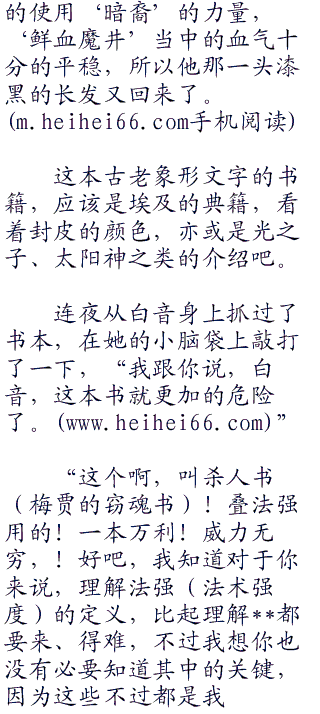 的使用‘暗裔’的力量，
‘鲜血魔井’当中的血气十
分的平稳，所以他那一头漆
黑的长发又回来了。
(m.heihei66.com手机阅读)
这本古老象形文字的书
籍，应该是埃及的典籍，看
着封皮的颜色，亦或是光之
子、太阳神之类的介绍吧。
连夜从白音身上抓过了
书本，在她的小脑袋上敲打
了一下，“我跟你说，白
音，这本书就更加的危险
了。(www.heihei66.com)”
“这个啊，叫杀人书
（梅贾的窃魂书）！叠法强
用的！一本万利！威力无
穷，！好吧，我知道对于你
来说，理解法强（法术强
度）的定义，比起理解**都
要来、得难，不过我想你也
没有必要知道其中的关键，
因为这些不过都是我